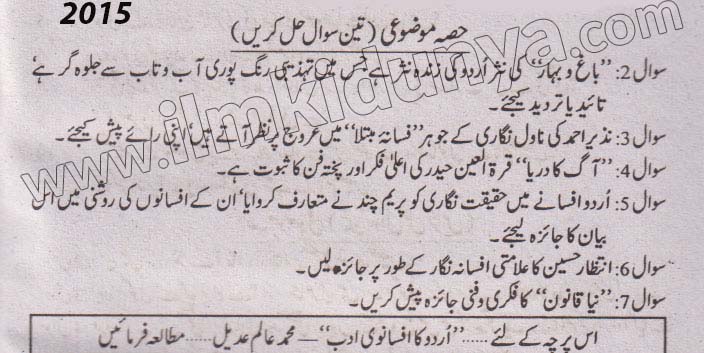 2015
حصہ موضوعی (تین سوال حل کریں)
سوال 2: ’’باغ و بہار‘‘ کی نثر اُردو کی زندہ نثر ہے جس میں تہذیبی رنگ پوری آب و تاب سے جلوہ گر ہے‘
تائید یا تردید کیجئے۔
سوال 3: نذیر احمد کی ناول نگاری کے جوہر ’’فسانۂ مبتلا‘‘ میں عروج پر نظر آتے ہیں‘ اپنی رائے پیش کیجئے۔
سوال 4: ’’آگ کا دریا‘‘ قرۃ العین حیدر کی اعلیٰ فکر اور پختہ فن کا ثبوت ہے۔
سوال 5: اُردو افسانے میں حقیقت نگاری کو پریم چند نے متعارف کروایا‘ ان کے افسانوں کی روشنی میں اس
بیان کا جائزہ لیجئے۔
سوال 6: انتظار حسین کا علامتی افسانہ نگار کے طور پر جائزہ لیں۔
سوال 7: ’’نیا قانون‘‘ کا فکری و فنی جائزہ پیش کریں۔
اس پرچہ کے لئے ...... ’’اُردو کا افسانوی ادب‘‘ — محمد عالم عدیل ...... مطالعہ فرمائیں
www.ilmkidunya.com